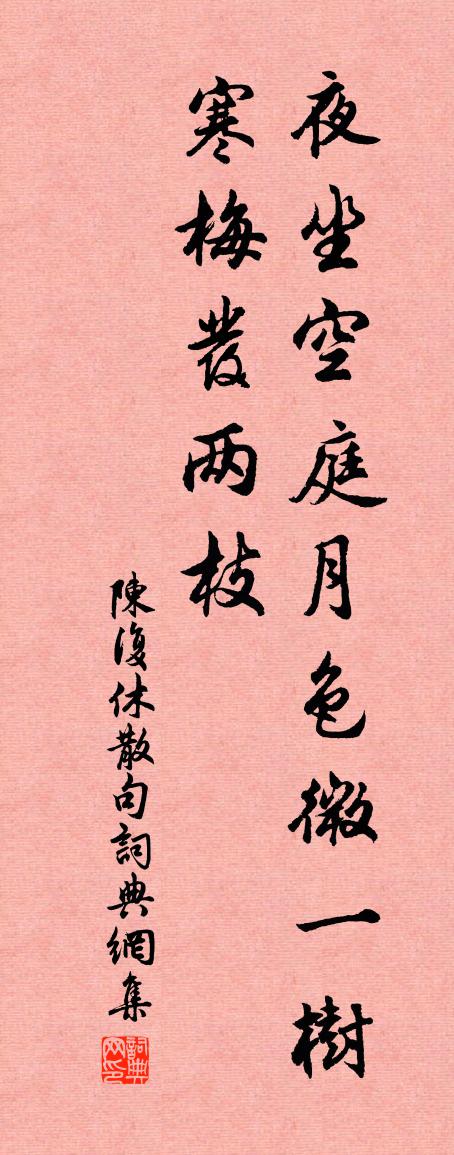 夜坐空庭月色微一樹
寒梅發两枝
陳復休散句詞典網集
詞典网印